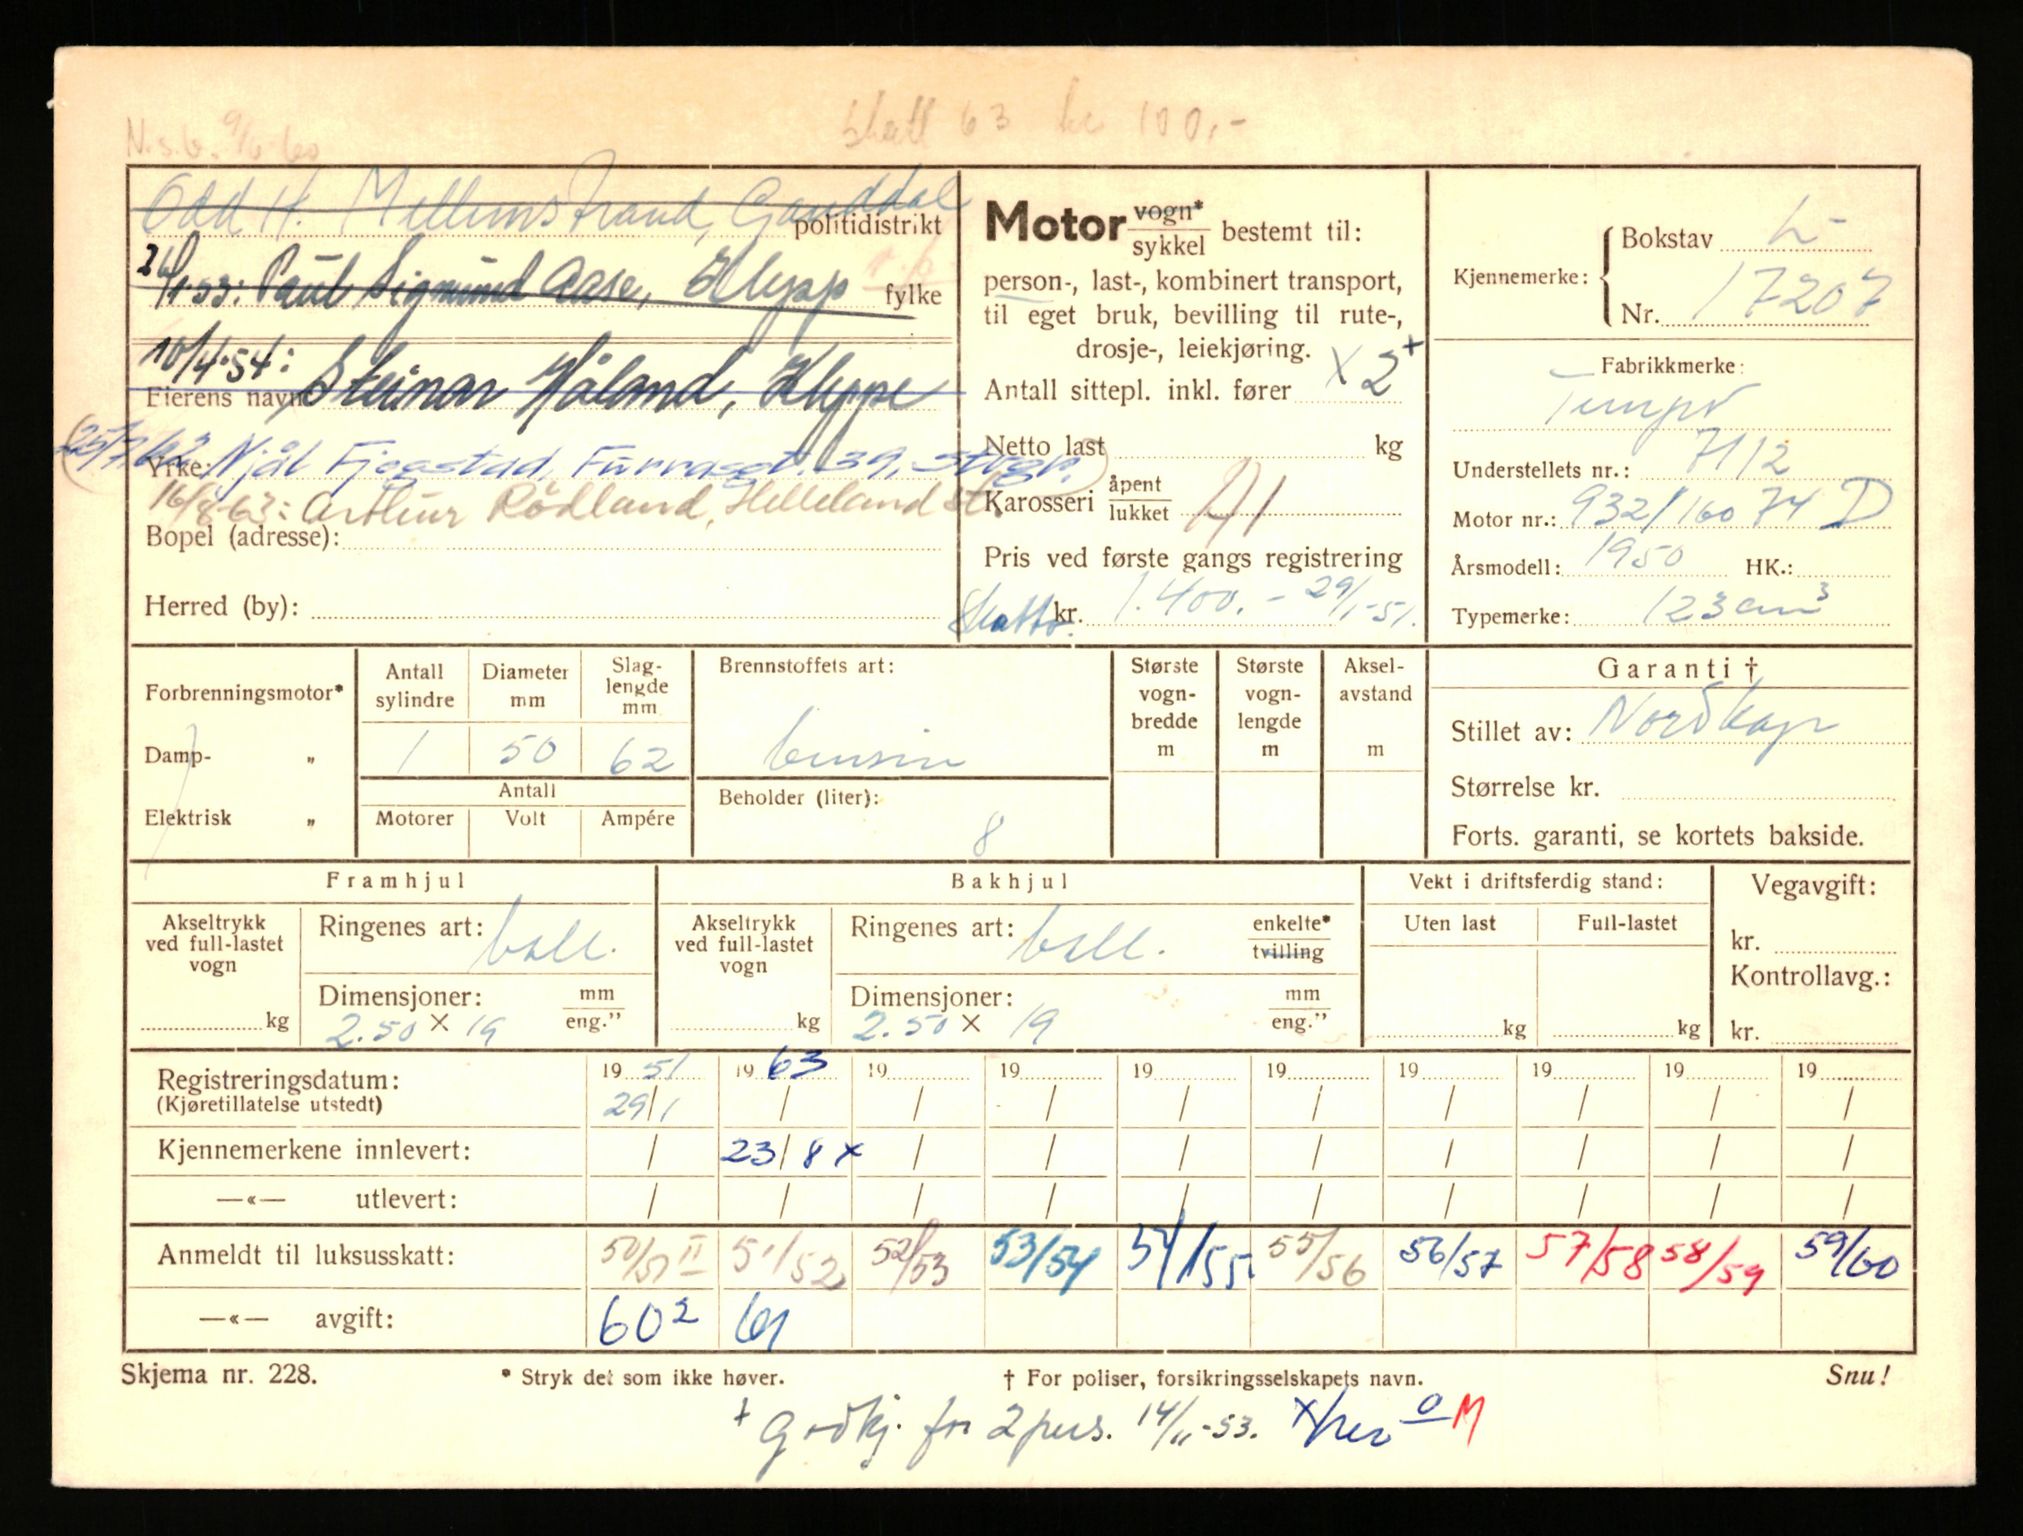 skatt 63 kr 100,-
N.s.b. 9/6-60
Odd H. Mellemstrand, Ganddal
politidistrikt
26/1-53: Paul Sigmund Aase, Klepp
fylke
10/4-54: Steinar Håland, Kleppe
Eierens navn
25/7-62 Njål Fjogstad, Furrasgt. 39, Stvgr.
Yrke:
16/8-63: Arthur Rødland, Helleland st.
Bopel (adresse):
Herred (by):
Motor vogn* sykkel bestemt til:
person-, last-, kombinert transport,
til eget bruk, bevilling til rute-,
drosje-, leiekjøring.
Antall sittepl. inkl. fører x 2+
Netto last kg
Karosseri åpent lukket A1
Pris ved første gangs registrering
Skattb. kr. 1.400.- 29/1-51.
Kjennemerke: Bokstav L-
Nr. 17207
Fabrikkmerke:
Tempo
Understellets nr.: 7112
Motor nr.: 932/16074 D
Årsmodell: 1950 HK.:
Typemerke: 123 cm3
Forbrenningsmotor*
Damp- „
Elektrisk „
Antall sylindre 1
Diameter mm 50
Slag- lengde mm 62
Antall
Motorer Volt Ampére
Brennstoffets art:
bensin
Beholder (liter):
8
Største vogn- bredde m
Største vogn- lengde m
Aksel- avstand m
Garanti †
Stillet av: Nordkap
Størrelse kr.
Forts. garanti, se kortets bakside.
Framhjul
Akseltrykk ved full-lastet vogn kg
Ringenes art: ball.
Dimensjoner: mm eng.”
2.50 x 19
Bakhjul
Akseltrykk ved full-lastet vogn kg
Ringenes art: ball. enkelte* tvilling
Dimensjoner: mm eng.”
2.50 x 19
Vekt i driftsferdig stand:
Uten last Full-lastet
kg kg
Vegavgift:
kr.
Kontrollavg.:
kr.
Registreringsdatum: 19 51 19 63 19 19 19 19 19 19 19 19
(Kjøretillatelse utstedt) 29/1 / / / / / / / / /
Kjennemerkene innlevert: / 23/8 x / / / / / / / /
—«— utlevert: / / / / / / / / / /
Anmeldt til luksusskatt: 50/51 II 51/52 52/53 53/54 54/55 55/56 56/57 57/58 58/59 59/60
—«— avgift: 60² 61
Skjema nr. 228. * Stryk det som ikke høver. † For poliser, forsikringsselskapets navn. Snu!
+ godkj. for 2 pers. 14/11-53.
M